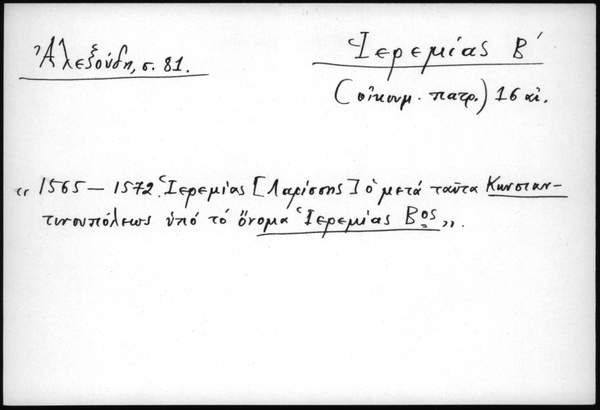 Ἀλεξούδη, σ. 81.
Ἱερεμίας Β΄
(οἰκουμ. πατρ.) 16 αἰ.
«1565 – 1572. Ἱερεμίας [Λαρίσσης] ὁ μετά ταῦτα Κωνσταν-
τινουπόλεως ὑπό τό ὄνομα Ἱερεμίας Βος».